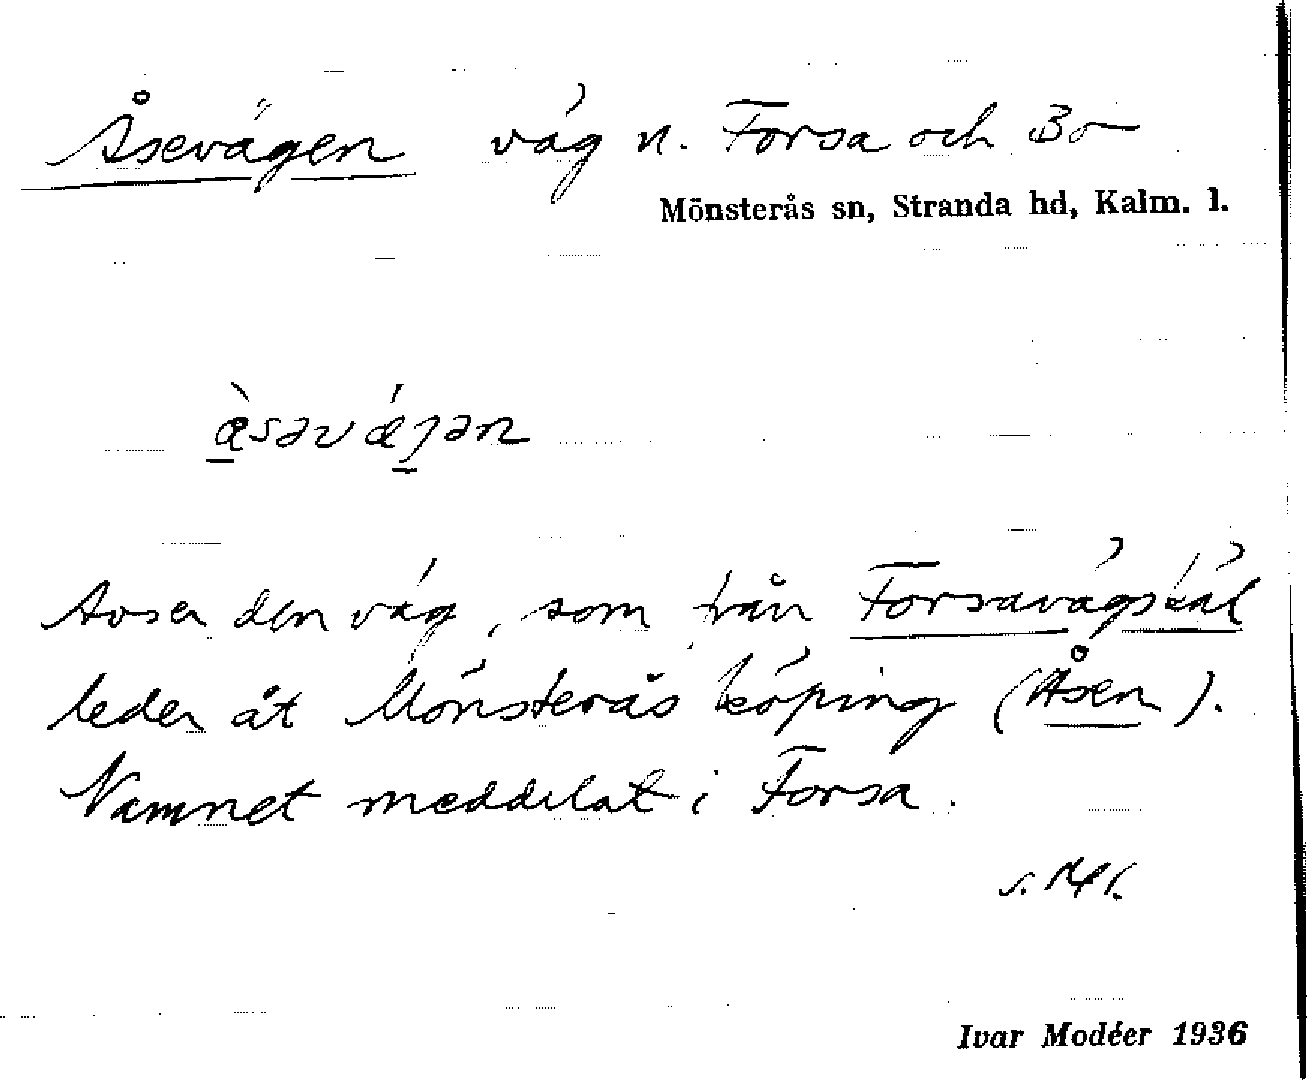 Åsevägen väg n. Forsa och Bo
Mönsterås sn, Stranda hd, Kalm. l.
Avser den väg, som från Forsavägskäl
leder åt Mönsterås köping (Åsen).
Namnet meddelat i Forsa.
Ivar Modéer 1936